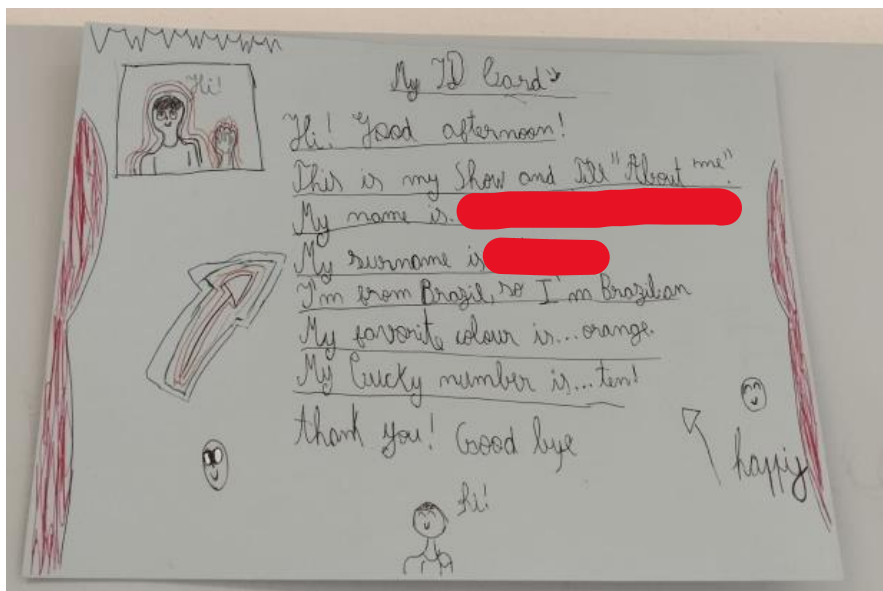 Hi!
My ID Card
Hi! Good afternoon!
This is my Show and Tell "About me".
My name is
My surname is
I'm from Brazil, so I'm Brazilian
My favorite colour is... orange.
My Lucky number is... ten!
thank you! Good bye
happy
hi!